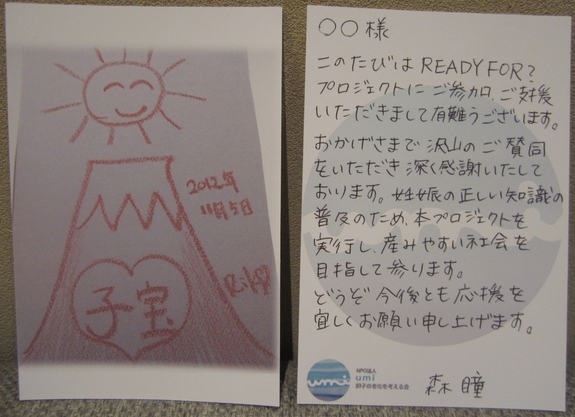 2012年
11月5日
子宝
〇〇様
このたびは READYFOR?
プロジェクトに ご参加、ご支援
いただきまして有難うございます。
おかげさまで 沢山の ご賛同
をいただき 深く感謝いたして
おります。妊娠の正しい知識の
普及のため、本プロジェクトを
実行し、産みやすい社会を
目指して参ります。
どうぞ 今後とも 応援を
宜しくお願い申し上げます。
NPO法人
umi
卵子の老化を考える会
umi
森 瞳